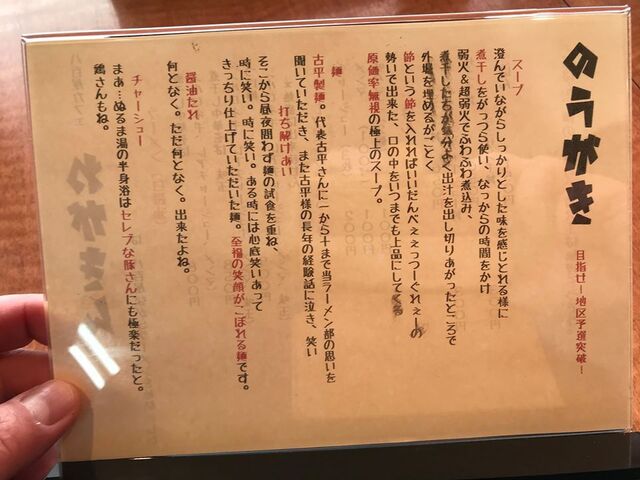 のうがき
目指せ!地区予選突破!
スープ
澄んでいながらしっかりとした味を感じとれる様に
煮干しをがっつら使い、なっからの時間をかけ
弱火&超弱火でふわふわ煮込み、
煮干したちが気分よく出汁を出し切りあがったところで
外堀を埋めるがごとく
節という節を入れればいいだんべぇぇっつーぐれぇーの
勢いで出来た、口の中をいつまでも上品にしてくる
原価率無視の極上のスープ。
麺
古平製麺。代表古平さんに一から十まで当ラーメン部の思いを
聞いていただき、また古平様の長年の経験話に泣き、笑い
打ち解けあい
そこから昼夜問わず麺の試食を重ね、
時に笑い。時に笑い。ある時には心底笑いあって
きっちり仕上げていただいた麺。至福の笑顔がこぼれる麺です。
醤油たれ
何となく。ただ何となく。出来たよね。
チャーシュー
まぁ…ぬるま湯の半身浴はセレブな豚さんにも極楽だったと。
鶏さんもね。